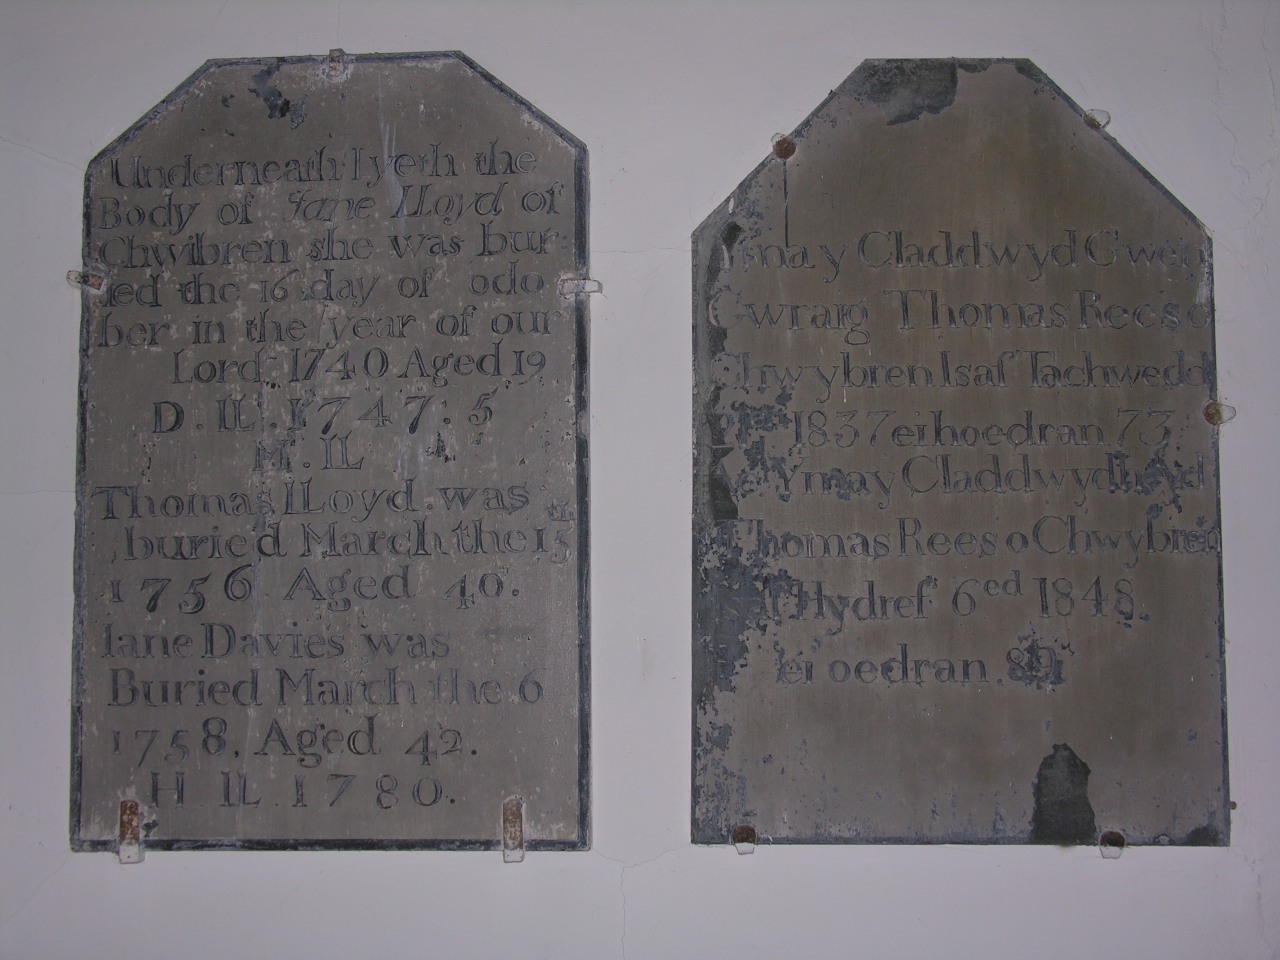 Underneath Iyeth the
Body of Jane lLoyd of
Chwibren she was bur
ied the 16 day of odo
ber in the year of our
Lord. 1740 Aged 19
D. lL. 1747: 5
M. lL
Thomas lLoyd. was
buried March the 15
1756 Aged 40.
Iane Davies was
Buried March the 6
1758. Aged 42.
H lL 1780.
ymay Claddwyd Gwen
Gwraig Thomas Rees o
Chwybren Isaf Tachwedd
1837 ei hoedran 73
Ymay Claddwyd hefyd
Thomas Rees o Chwybren
Hydref 6ed 1848.
ei oedran. 89